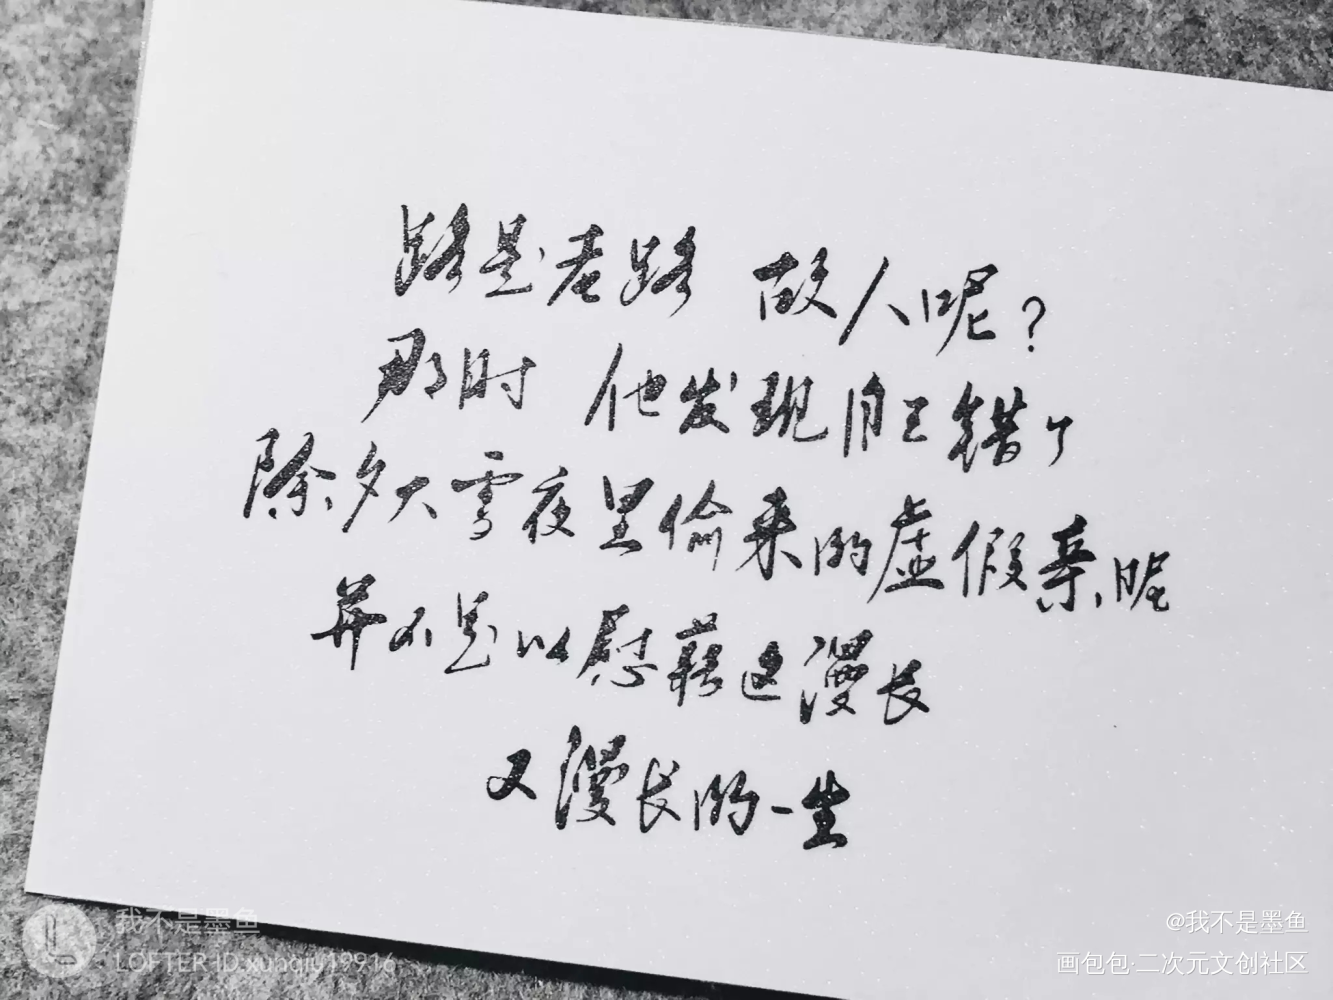 路是老路 故人呢?
那时 他发现自己错了
除夕大雪夜里偷来的虚假亲昵
并不足以慰藉这漫长
又漫长的一生
我不是墨鱼
LOFTER ID:xunqiu19916
@我不是墨鱼
画包包·二次元文创社区